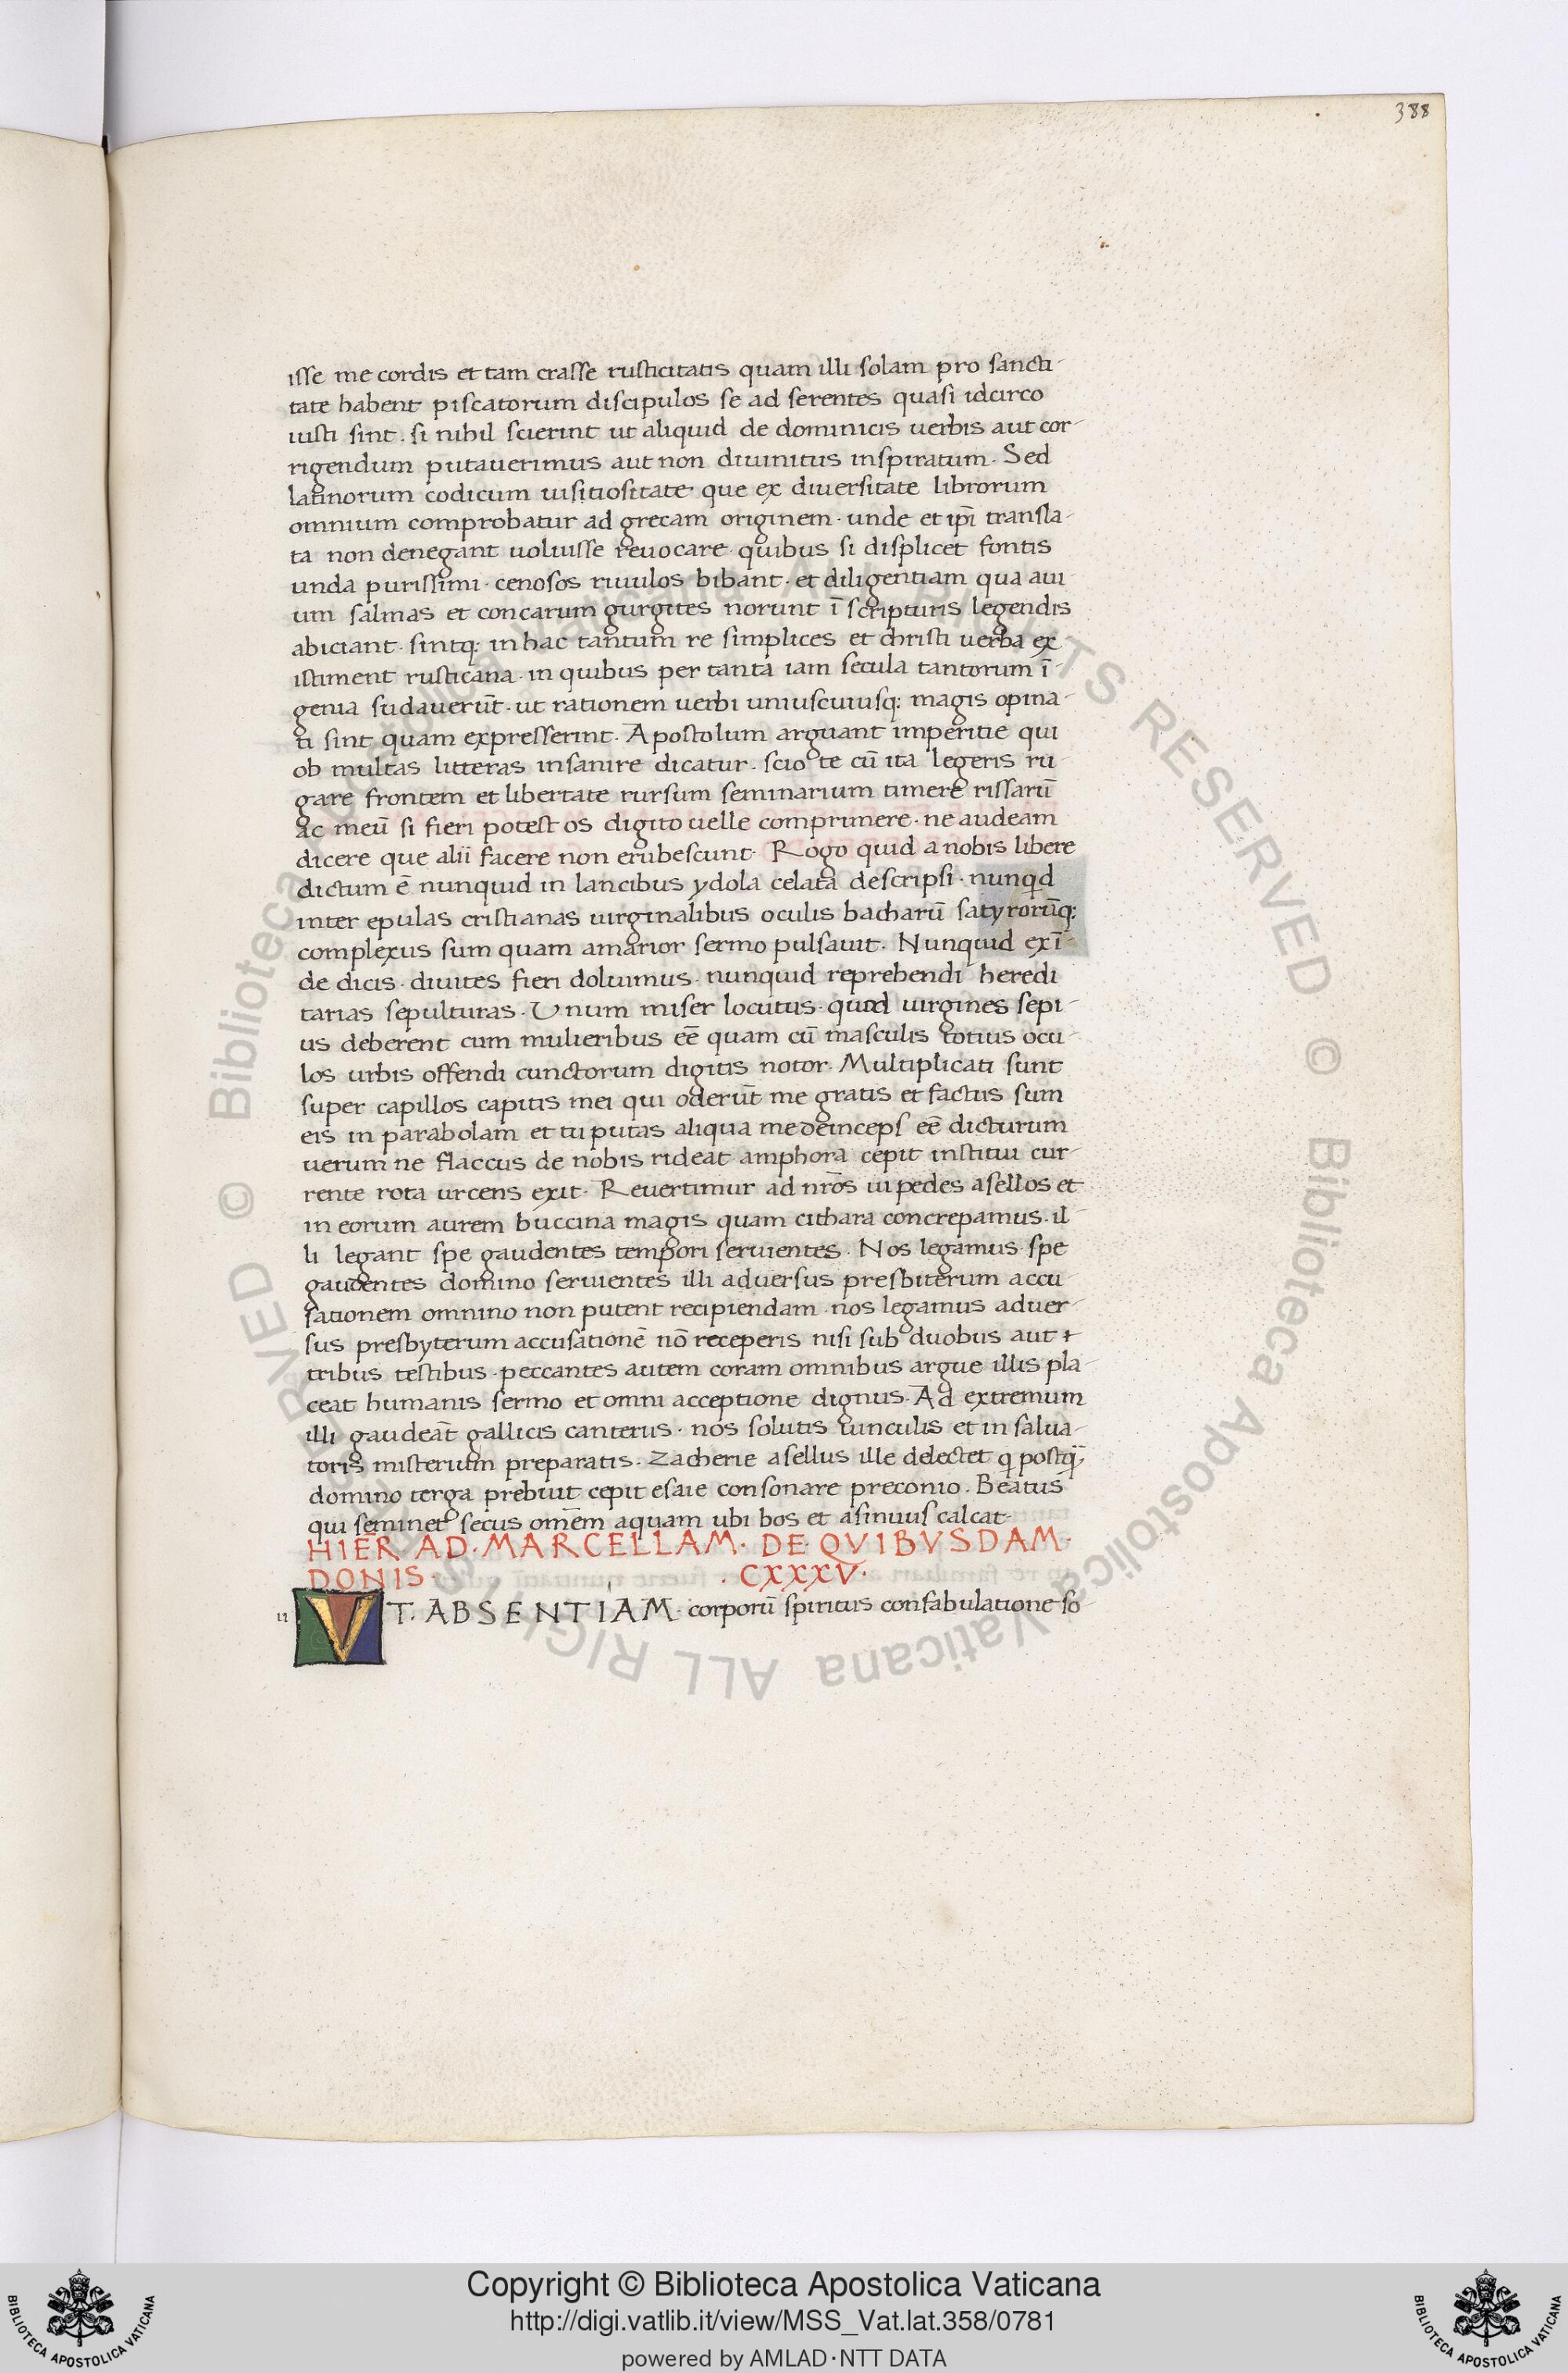 388
isse me cordis et tam crasse rusticitatis quam illi solam pro sancti-
tate habent piscatorum discipulos se ad serentes quasi idcirco
iusti sint. si nihil scierint ut aliquid de dominicis uerbis aut cor-
rigendum putauerimus aut non diuinitus inspiratum. Sed
latinorum codicum uisitiositate que ex diuersitate librorum
omnium comprobatur ad grecam originem. unde et ip̄i transla-
ta non denegant uoluisse reuocare. quibus si displicet fontis
unda purissimi. cenosos riuulos bibant. et diligentiam qua aui-
um salmas et concarum gurgites norunt ī scripturis legendis
abiciant. sintq: in hac tantum re simplices et christi uerba ex
istiment rusticana. in quibus per tanta iam secula tantorum ī-
genia sudauerūt. ut rationem uerbi uniuscuiusq: magis opina-
ti sint quam expresserint. Apostolum arguant imperitie qui
ob multas litteras insanire dicatur. scio te cū ita legeris ru-
gare frontem et libertate rursum seminarium timere rissarū
ac meū si fieri potest os digito uelle comprimere. ne audeam
dicere que alii facere non erubescunt. Rogo quid a nobis libere
dictum ē nunquid in lancibus ydola celata descripsi. nunqd
inter epulas cristianas uirginalibus oculis bacharū satyrorūq:
complexus sum quam amarior sermo pulsauit. Nunquid ex ī-
de dicis. diuites fieri doluimus. nunquid reprehendi heredi
tarias sepulturas. Unum miser locutus. quod uirgines sepi-
us deberent cum mulieribus eē quam cū masculis totius ocu-
los urbis offendi cunctorum digitis notor. Multiplicati sunt
super capillos capitis mei qui oderūt me gratis et factus sum
eis in parabolam et tu putas aliqua me deinceps eē dicturum
uerum ne flaccus de nobis rideat amphora cepit institui cur-
rente rota urcens exit. Reuertimur ad nr̄os uipedes asellos et
in eorum aurem buccina magis quam cithara concrepamus. il-
li legant spe gaudentes tempori seruientes. Nos legamus spe
gaudentes domino seruientes illi aduersus presbiterum accu-
sationem omnino non putent recipiendam. nos legamus aduer-
sus presbyterum accusationē nō receperis nisi sub duobus aut
tribus testibus. peccantes autem coram omnibus argue illis pla-
ceat humanis sermo et omni acceptione dignus. Ad extremum
illi gaudeāt gallicis canterus. nos solutis uinculis et in salua-
toris misterium preparatis. Zacherie asellus ille delectet q postq̄
domino terga prebuit cepit esaie consonare preconio. Beatus
qui seminet secus omēm aquam ubi bos et asinuus calcat.
HIER̄ AD. MARCELLAM. DE QVIBVSDAM.
DONIS. . CXXXV.
VT. ABSENTIAM. corporū spiritus confabulatione so-
© Biblioteca Apostolica Vaticana ALL RIGHTS RESERVED © Biblioteca Apostolica Vaticana ALL RIGHTS RESERVED
Copyright © Biblioteca Apostolica Vaticana
http://digi.vatlib.it/view/MSS_Vat.lat.358/0781
powered by AMLAD·NTT DATA
BIBLIOTECA APOSTOLICA VATICANA
BIBLIOTECA APOSTOLICA VATICANA